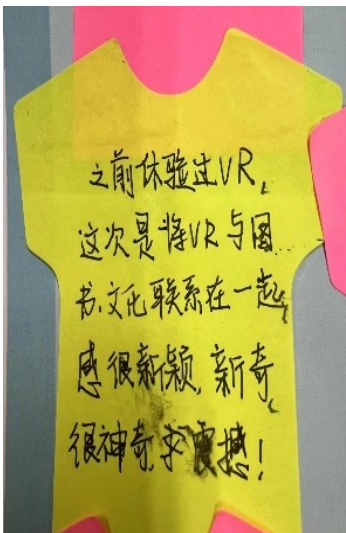 之前体验过VR,
这次是将VR与图
书、文化联系在一起,
感很新颖,新奇,
很神奇,求震撼!